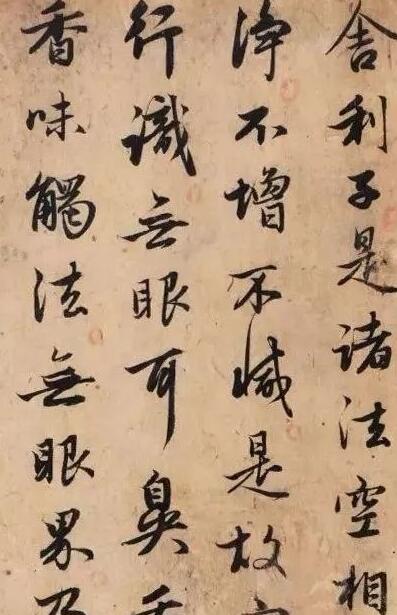 舍利子是诸法空相
净不增不减是故
行識無眼耳鼻舌
香味觸法無眼界乃